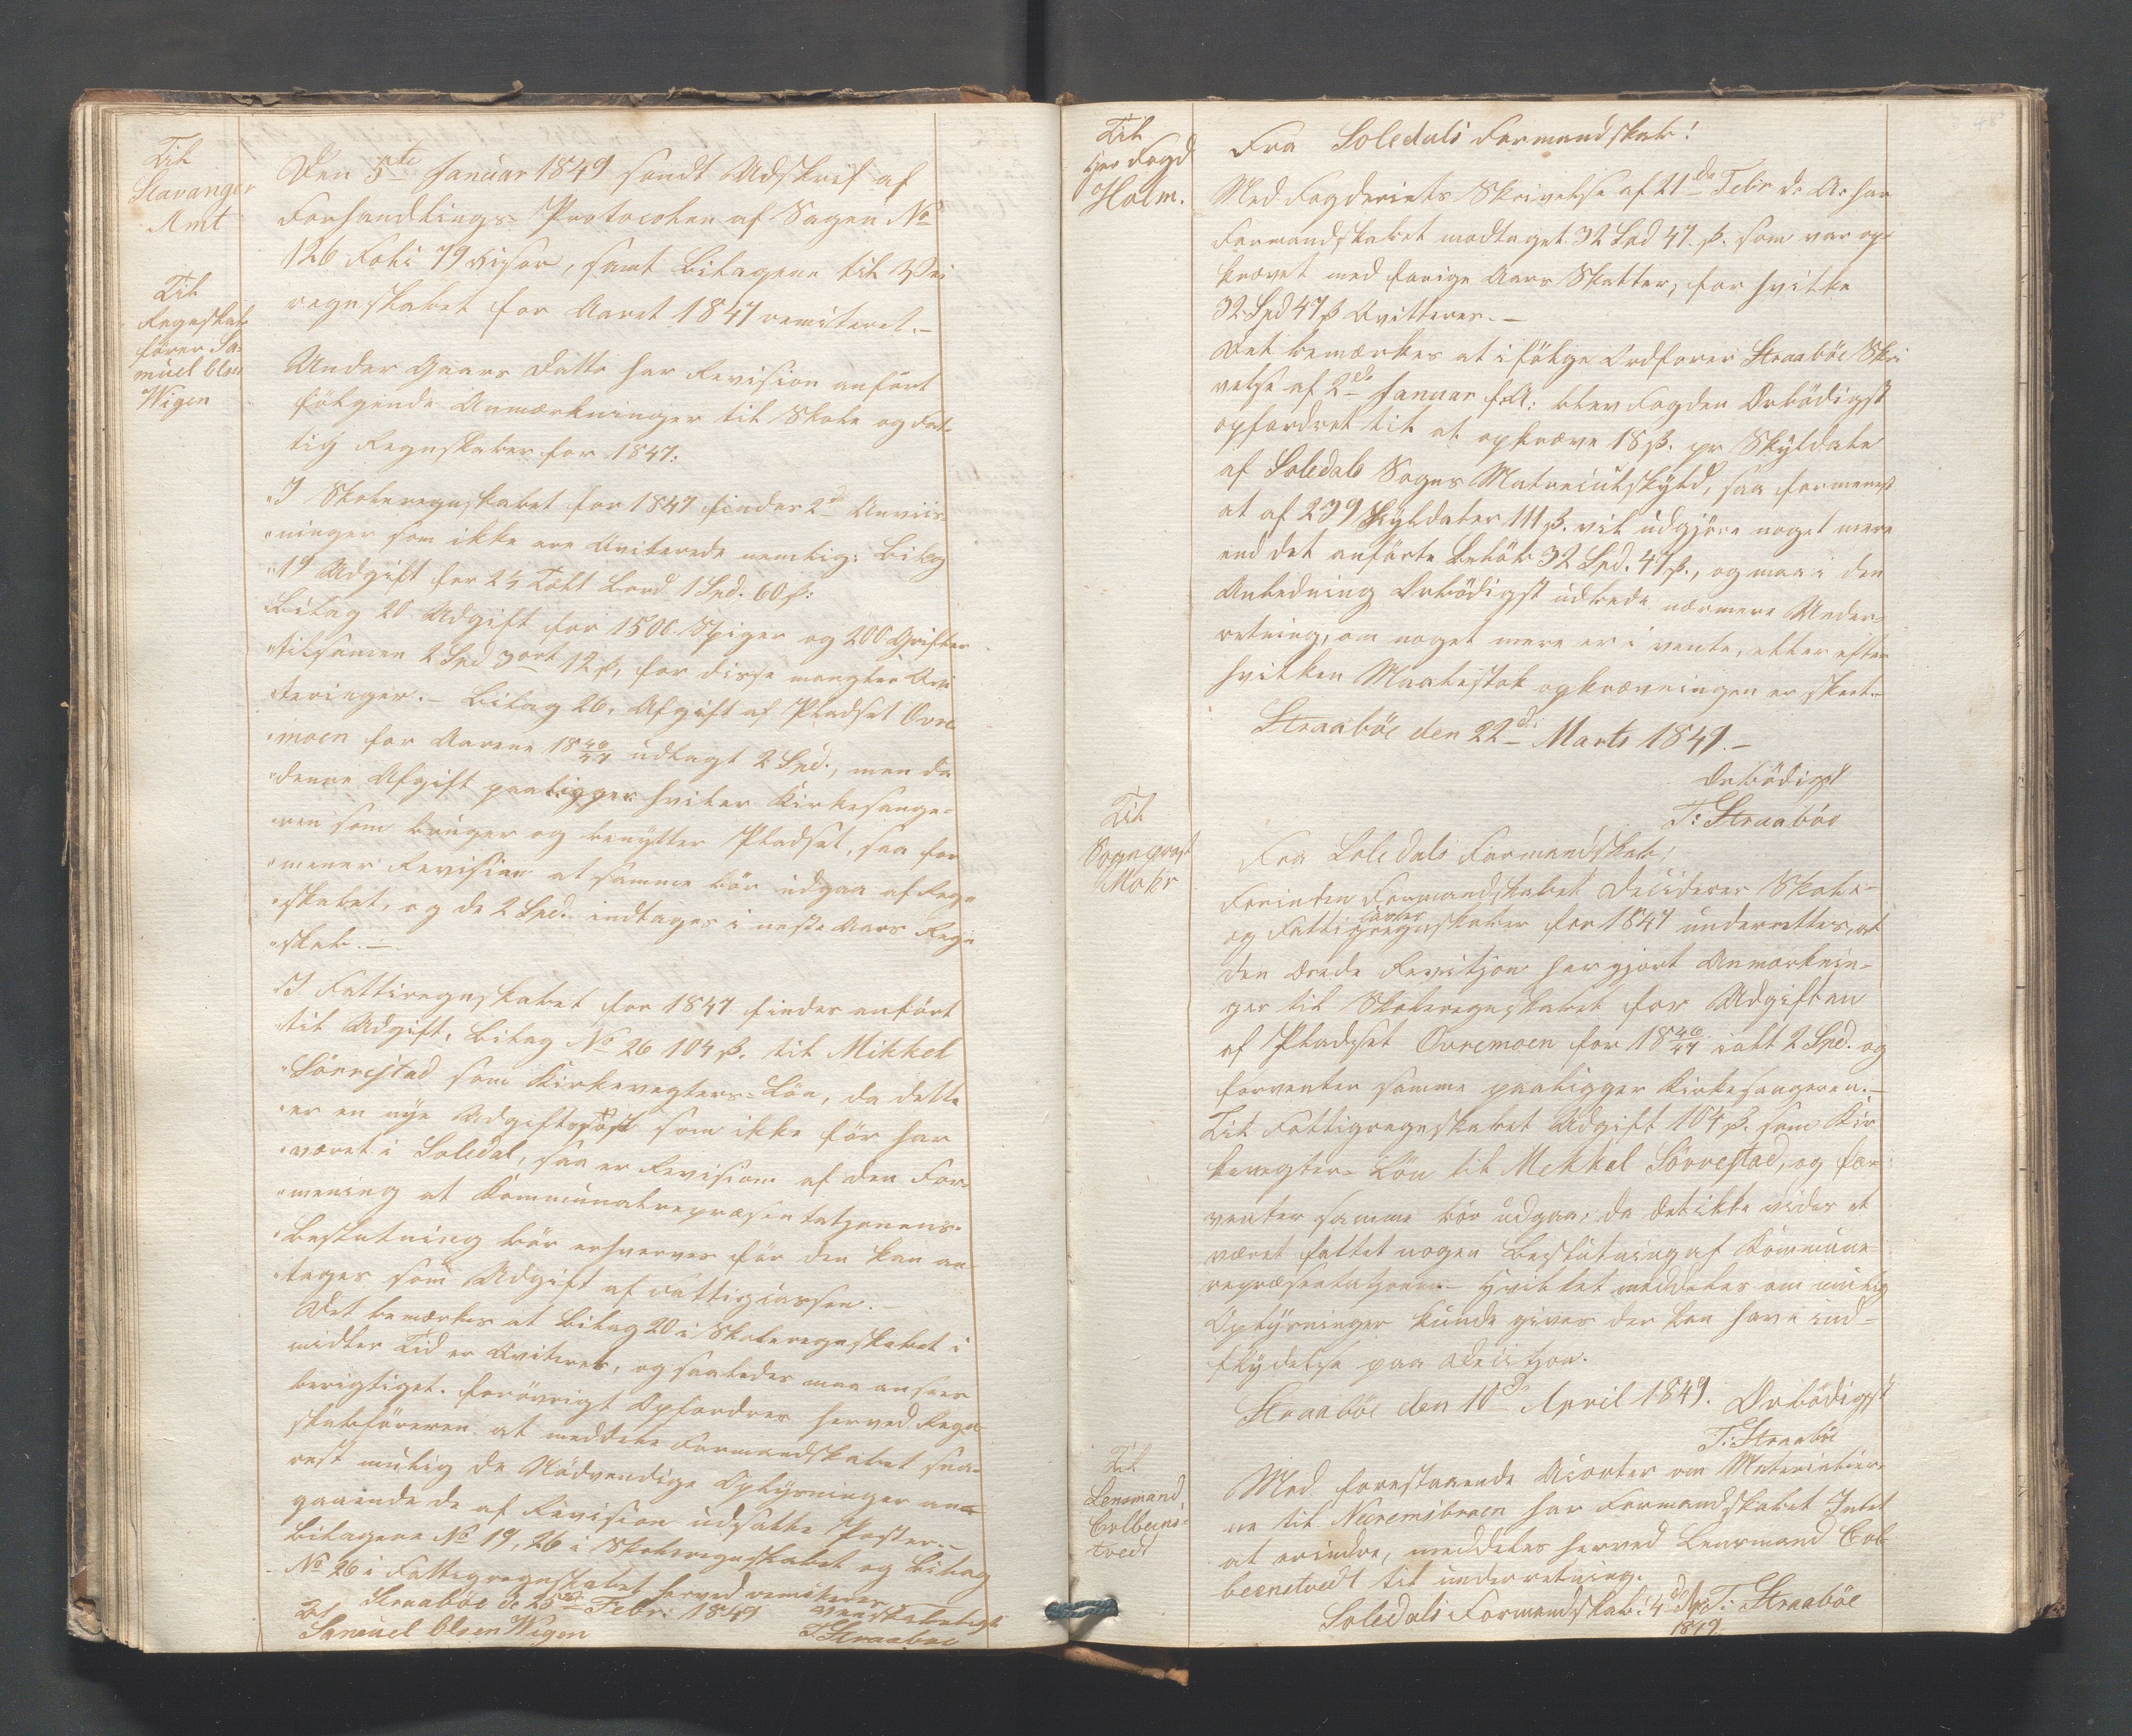 Til
Stavanger
Amt
Den 5te Januar 1849 sendt Udskrif af
Forhandlings-Protocolen af Sagen No
126 Foli 79 viser, samt Bilagene til Vei
regnskabet for Aaret 1847 remiteret.-
Til
Regnskabs
fører Sa-
muel Olsen
Wigen
Under Gaars Datto har Revision anført
følgende Anmærkninger til Skole og Fat-
tig Regnskaber for 1847:
"I Skoleregnskabet for 1847 findes 2de Anviis-
"ninger som ikke ere Qviterede nemlig: Bilag
"19 Udgift for 2½ Tolt Bord 1 Spd. 60 s:
Bilag 20 Udgift for 1500 Spiger og 200
"tilsamen 2 Spd 3 ort 12 s, for disse mangler Qvi
"teringer.- Bilag 26, Afgift af Pladset Ovre
"moen for Aarene 1846/47 udlagt 2 Spd., men da
"denne Afgift paaligger hviler Kirkesange-
"ren som bruger og benytter Pladset, saa for
"mener Revision at samme bør udgaa af Regn
"skabet, og de 2 Spd. indtages i neste Aars Regn
"skab.-
"I Fattiregnskabet for 1847 findes anført
"til Udgift, Bilag No 26 104 s. til Mikkel
"Sørrestad som Kirkevegters-Løn, da dette
"er en nye Udgiftspost som ikke før har
"været i Soledal, saa er Revision af den For-
"mening at Kommunalrepræsentatjonens-
"Beslutning bør erhverves før den kan an-
"tages som Udgift af Fattigcassen.-
Det bemærkes at Bilag 20 i Skoleregnskabet i
midler Tid er Qviteret, og saaledes maa ansees
berigtiget. Forøvrigt Opfordres herved Regn
skabsføreren at meddele Formandskabet snarest
mulig de Nødvendige Oplysninger an-
gaaende de af Revision udsatte Poster.-
Bilagene No 19, 26 i Skoleregnskabet og Bilag
No 26 i Fattigregnskabet herved remiteres
Straabøe d: 25de Febr: 1849 Venskabeligst
Samuel Olsen Wigen T. Straabøe
Til
Herr Foged
Holm.
Fra Soledals Formandskab!
Med Fogderiets Skrivelse af 21de Febr d: A: har
Formandskabet modtaget 32 Spd 47 s. som var op-
krævet med forige Aars Skatter, for hvilke
32 Spd 47 s Qvitteres.-
Det bemærkes at ifølge Ordfører Straabøe Skri
velse af 2de Januar f: A: blev Fogden Ærbødigst
opfordret til at opkræve 18 s. pr Skyldale
af Soledals Sogns Matriculskyld, saa formenes
at af 239 Skyldaler 111 s. vil udgjøre noget mere
end det anførte Beløb 32 Spd. 47 s., og maa i den
Anledning Ærbødigst udbede nærmere Under-
retning, om noget mere er i vente, eller efter
hvilken Maalestok opkrævningen er skeet.-
Straabøe den 22de Marts 1849.-
Ærbødigst
T: Straabøe
Til
Sogneprest
Mohr
Fra Soledals Formandskab!
Forinden Formandskabet Deciderer Skole-
og Fattigregnskaber for 1847 underrettes, at
den ærede Revisjon har gjort Anmærknin-
ger til Skoleregnskabet for Udgiften
af Pladset Ovremoen for 1846/47 ialt 2 Spd. og
formenter samme paaligger Kirkesangeren.-
Til Fattigregnskabet Udgift 104 s. som Kir
kevegter-Løn til Mekkel Sørrestad, og for-
menter samme bør udgaa, da det ikke vides at
været fattet nogen Beslutning af Kommune
repræsentatjonen- Hvilket meddeles om mulig
Oplysninger kunde gives der kan have ind-
flydelse paa Decisjon.
Straabøe den 10de April 1849. Ærbødigst
T: Straabøe
Til
Lensmand
Colbeens-
tvedt
Med forestaaende Acorter om Materialier-
ne til Neeremsbroen har Formandskabet Intet
at erindre, meddeles herved Lensmand Col
beenstvedt til underretning.
Soledals Formandskab. 4de T: Straabøe
1849.